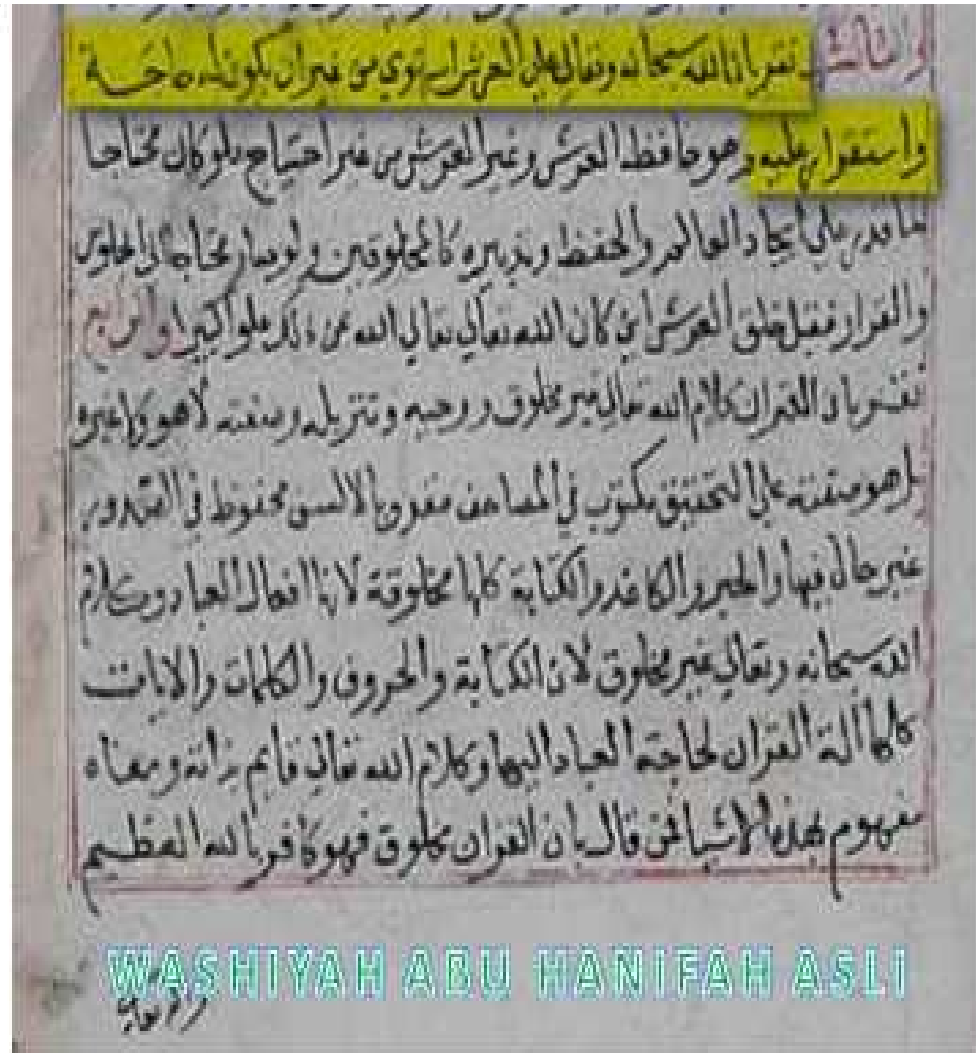 والثالث نقر بان الله سبحانه وتعالى على العرش استوى من غير ان يكون له حاجة
واستقرار عليه وهو حافظ العرش وغير العرش من غير احتياج فلو كان محتاجا
لما قدر على ايجاد العالم والحفظ وتدبيره كالمخلوقين ولو صار محتاجا الى الجلوس
والقرار فقبل خلق العرش اين كان الله تعالى تعالى الله عن ذلك علوا كبيرا والرابع
نقر بان القران كلام الله تعالى غير مخلوق ووحيه وتنزيله وصفته لا هو ولا غيره
بل هو صفته على التحقيق مكتوب في المصاحف مقرو بالالسن محفوظ في الصدور
غير حال فيها والحبر والكاغد والكتابة كلها مخلوقة لانها افعال العباد وكلام
الله سبحانه وتعالى غير مخلوق لان الكتابة والحروف والكلمات والايات
كلها الة القران لحاجة العباد اليها وكلام الله تعالى قايم بذاته ومعناه
مفهوم بهذه الاشيا فمن قال بان القران مخلوق فهو كافر بالله العظيم
WASHIYAH ABU HANIFAH ASLI